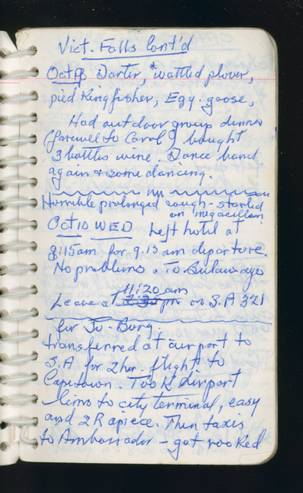 Vict. Falls Cont'd
Oct 8 Darter, wattled plover,
pied Kingfisher, Egy. goose,
Had outdoor group dinner
(farewell to Carol) bought
3 bottles wine. Dance band
again & some dancing.
Horrible prolonged cough - started
on
Oct 10 WED Left hotel at
8:15am for 9.15 am departure.
No problems. To Bulawayo
11:20 am
Leave at pm on S.A 321
for Jo-Burg.
transferred at airport to
S.A for 2hr. flight to
Capetown. Took airport
limo to city terminal, easy
and 2R apiece. Then taxis
to Ambassador - got rooked